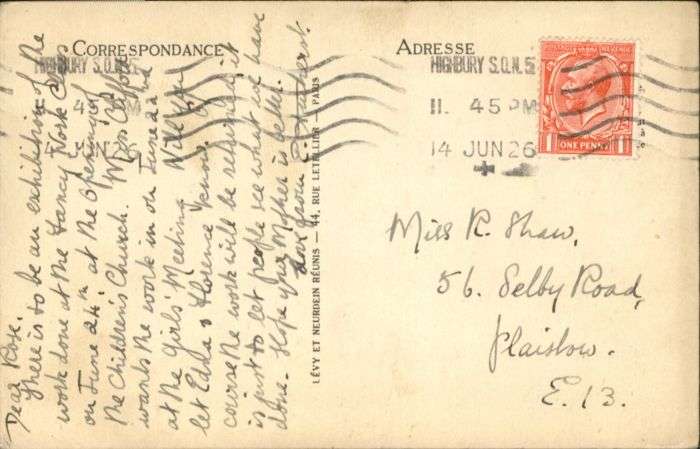 CORRESPONDANCE
Dear Rose.
There is to be an exhibition of the
work done at the Fancy Work Class
on June 24th at the Opening of
the Children's Church. Miss
wants the work in on June 22nd
at the Girls' Meeting. Will you
let Edna & Florence know. Of
course the work will be returned, it
is just to let people see what we have
done. Hope your Mother is better.
Love from
HIGHBURY S.O.N.5
45 PM
JUN 26
LÉVY ET NEURDEIN RÉUNIS — 44, RUE LETELLIER — PARIS
ADRESSE
HIGHBURY S.O.N.5
11. 45 PM
14 JUN 26
POSTAGE REVENUE
1 ONE PENNY 1
Miss R. Shaw,
56. Selby Road,
Plaistow.
E.13.